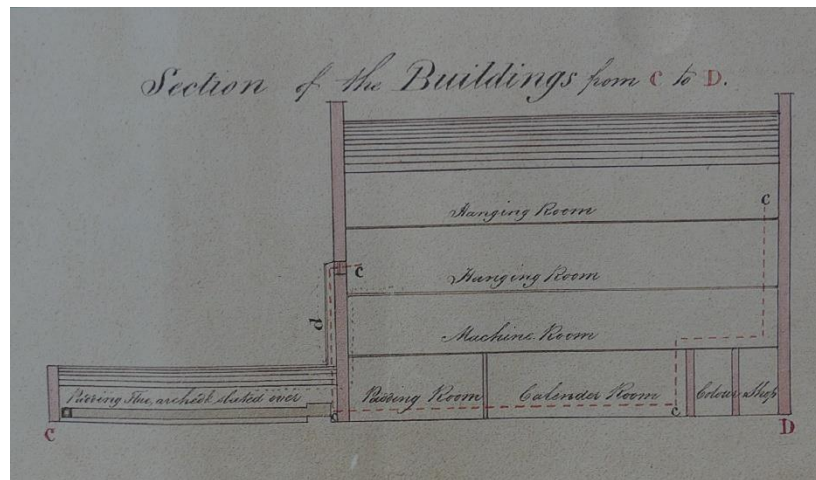 Section of the Buildings from C to D.
Hanging Room
c
Hanging Room
c
d
Machine Room
Padding Flue, arched & slated over
Padding Room
Calender Room
Colour Shop
c
C
D